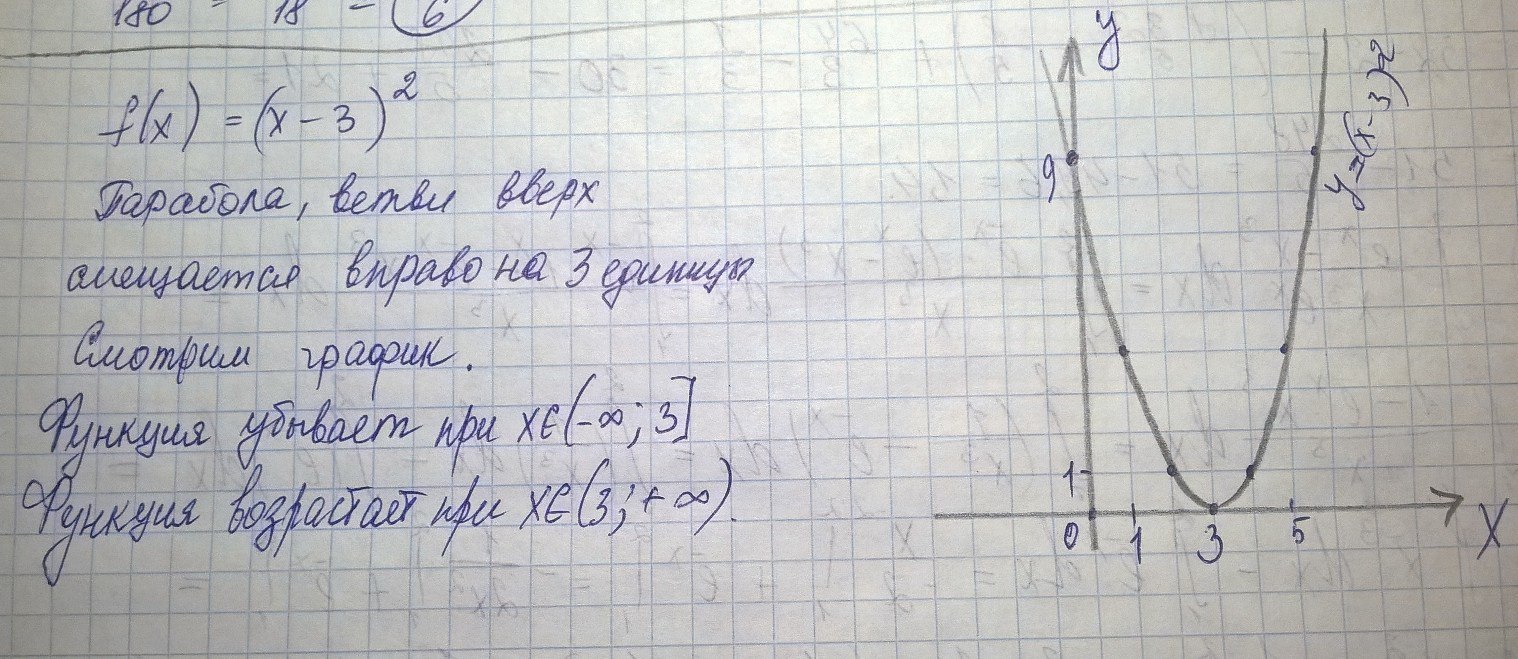 180 = 18 = 6
f(x) = (x-3)²
Парабола, ветви вверх
смещается вправо на 3 единицы
Смотрим график.
Функция убывает при x∈(-∞; 3]
Функция возрастает при x∈(3; +∞).
y
9
1
0 1 3 5
x
y=(x-3)²